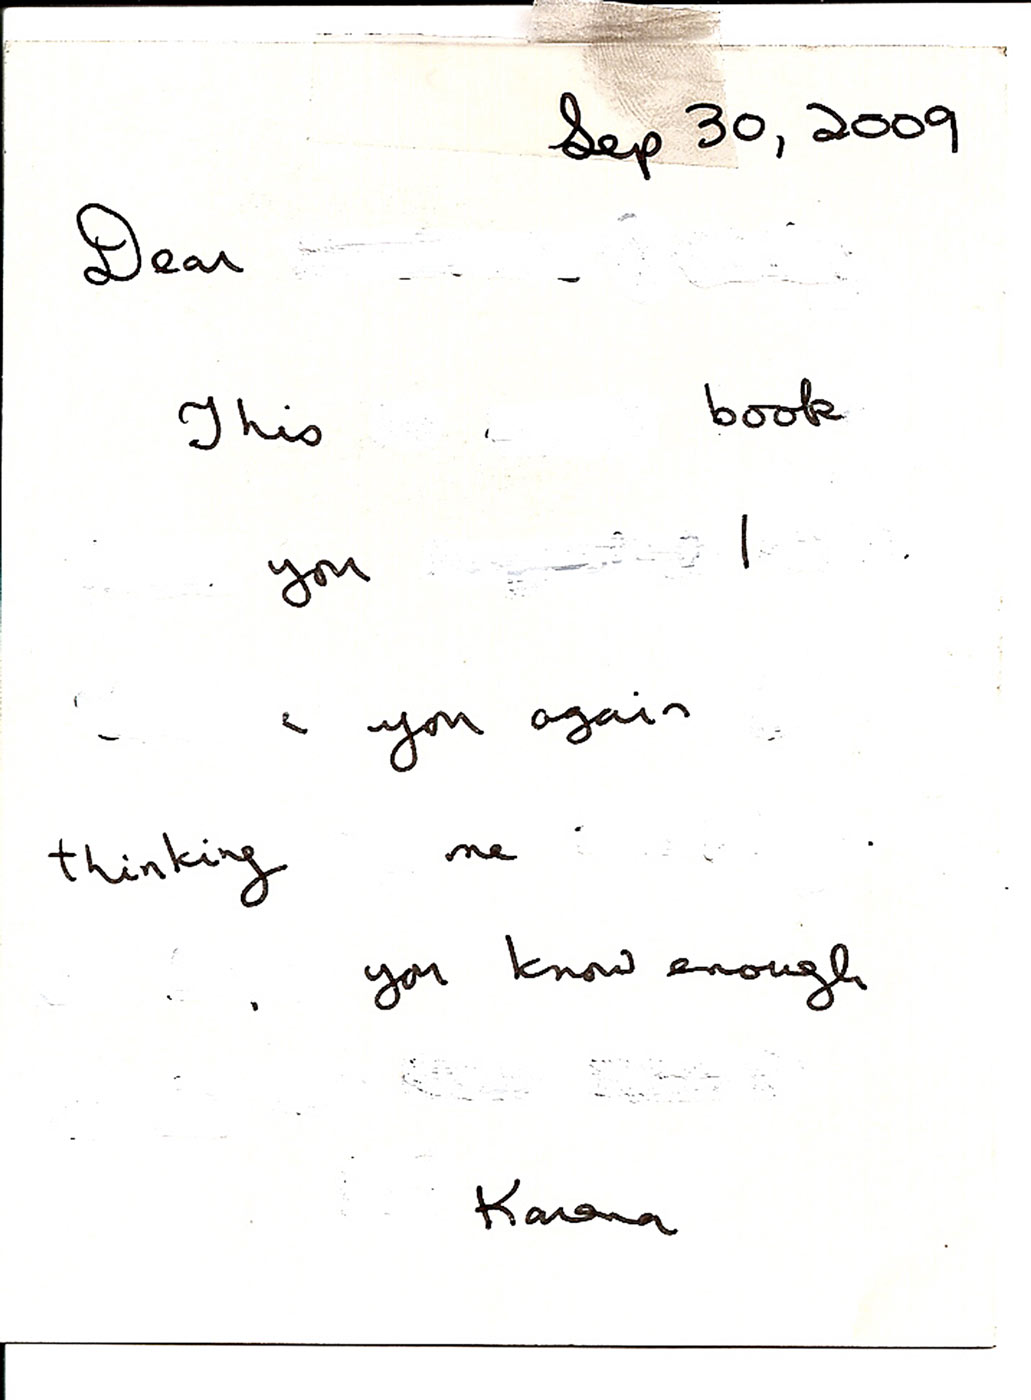 Sep 30, 2009
Dear
This book
you I
you again
thinking me
you know enough
Karena